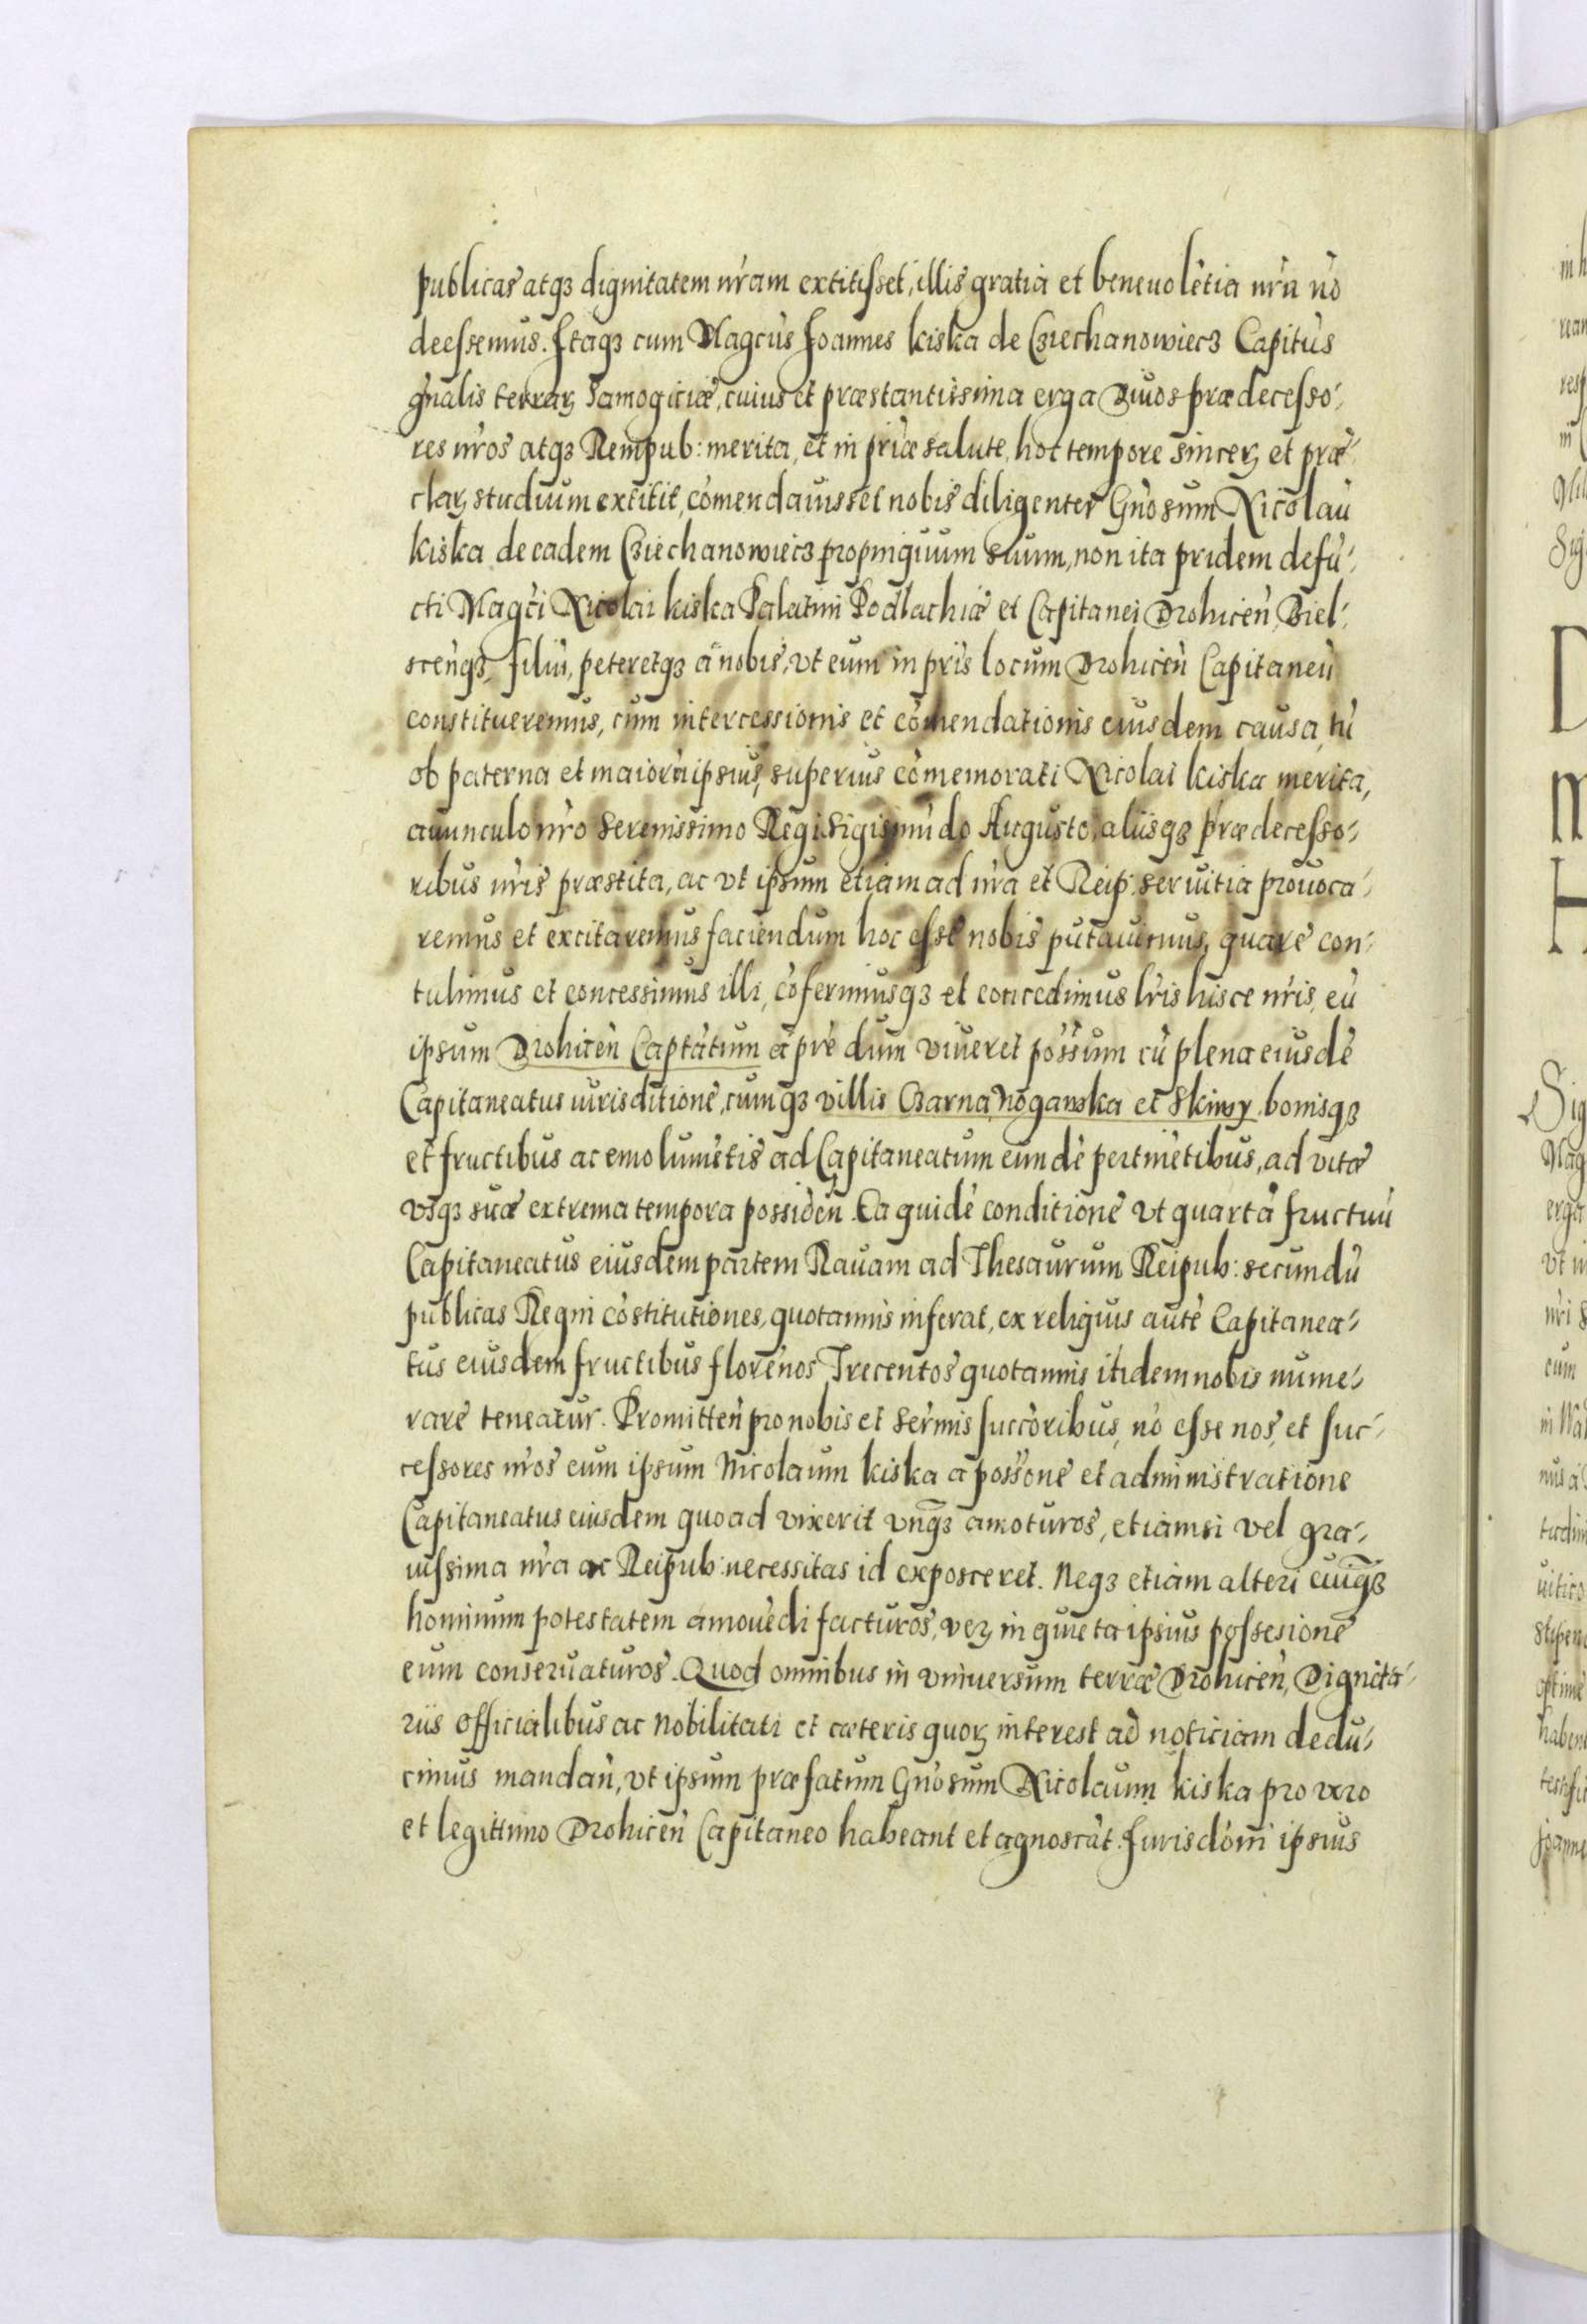 publicas atqꝫ dignitatem nr̃am extitisset, illis gratia et beneuolẽtia nr̃a nõ
deessemus. Itaqꝫ cum Magcus Joannes Kiska de Cziechanowiecz Capitus
gñalis terraꝝ Samogiciæ, cuius et præstantissima erga Diuos prædecesso-
res nr̃os atqꝫ Rempub: merita, et in pr̃iæ salute, hoc tempore sinceꝝ et præ-
claꝝ studium extitit, cõmendauisset nobis diligenter Gñosum Nicolaũ
Kiska de eadem Cziechanowiecz propinquum suum, non ita pridem defũ-
cti Magci Nicolai Kiska Palatini Podlachiæ et Capitanei Drohiceñ, Biel-
sceñqꝫ, filiũ, peteretqꝫ a nobis, vt eum in pr̃is locum Drohiceñ Capitaneũ
constitueremus, cum intercessionis et cõmendationis eiusdem causa, tũ
ob paterna et maiorũ ipsius, superius cõmemorati Nicolai Kiska merita,
auunculo nr̃o Serenissimo Regi Sigismũdo Augusto, aliisqꝫ prædecesso-
ribus nr̃is præstita, ac vt ipsum etiam ad nr̃a et Reip: seruitia prouoca-
remus et excitaremus faciendum hoc esse nobis putauimus, quare con-
tulimus et concessimus illi, cõferimusqꝫ et concedimus lr̃is hisce nr̃is, eũ
ipsum Drohiceñ Captãtum a pr̃e dum viueret possum cũ plena eiusdẽ
Capitaneatus iurisditione, cumqꝫ villis Czarna, Noganska et Skiwy. bonisqꝫ
et fructibus ac emolumẽtis ad Capitaneatum eundẽ pertinẽtibus, ad vitæ
vsqꝫ suæ extrema tempora possideñ. Ea quidẽ conditione vt quartã fructuũ
Capitaneatus eiusdem partem Rauam ad Thesaurum Reipub: secundũ
publicas Regni cõstitutiones, quotannis inferat, ex reliquis autẽ Capitanea-
tus eiusdem fructibus florenos Trecentos quotannis itidem nobis nume-
rare teneatur. Promitteñ pro nobis et Sermis succoribus, nõ esse nos, et suc-
cessores nr̃os eum ipsum Nicolaum Kiska a possone et administratione
Capitaneatus eiusdem quoad vixerit vnq̃ꝫ amoturos, etiamsi vel gra-
uissima nr̃a ac Reipub: necessitas id exposceret. Neqꝫ etiam alteri cuiq̃ꝫ
hominum potestatem amouẽdi facturos, veꝝ in quieta ipsius possesione
eum conseruaturos. Quod omnibus in vniuersum terræ Drohiceñ, Dignita-
riis officialibus ac Nobilitati et cæteris quoꝝ interest ad noticiam dedu-
cimus mandañ, vt ipsum præfatum Gñosum Nicolaum Kiska pro vero
et legittimo Drohiceñ Capitaneo habeant et agnoscãt. Jurisdõni ipsius